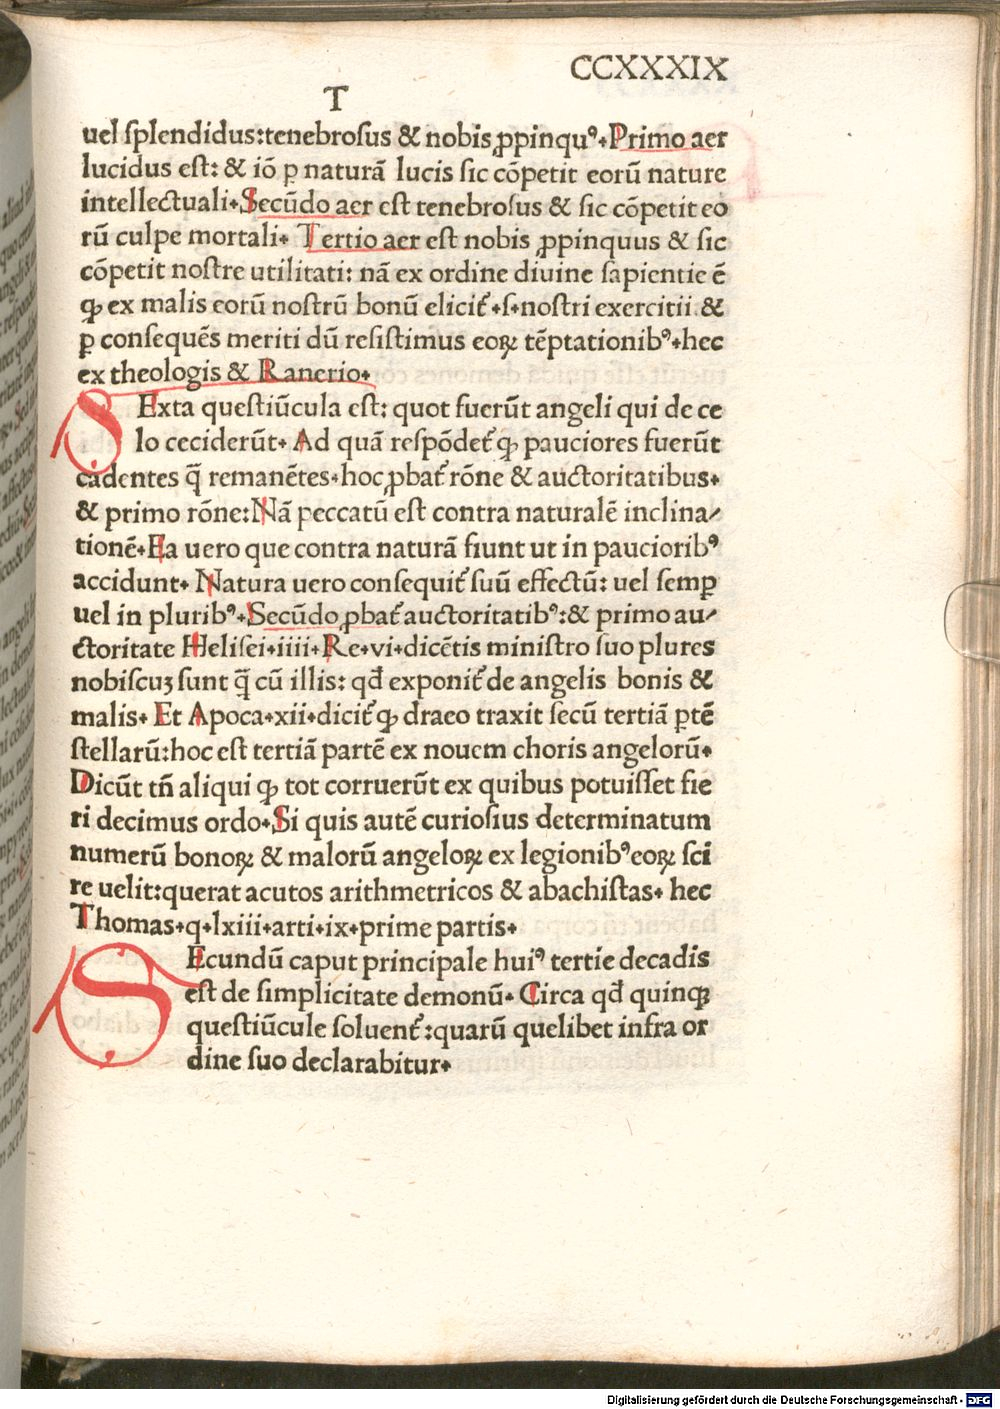 CCXXXIX
T
uel ſplendidus:tenebroſus & nobis ꝓpinquꝰ.Primo aer
lucidus eſt: & iō ꝑ naturā lucis ſic cōpetit eorū nature
intellectuali.Secūdo aer eſt tenebroſus & ſic cōpetit eo
rū culpe mortali. Tertio aer eſt nobis ꝓpinquus & ſic
cōpetit noſtre utilitati: nā ex ordine diuine ſapientie ē
ꝙ ex malis eorū noſtrū bonū elicit᷑.s.noſtri exercitii &
ꝑ conſequēs meriti dū reſiſtimus eoꝝ tēptationibꝰ.hec
ex theologis & Ranerio.
SExta queſtiūcula eſt: quot fuerūt angeli qui de ce
lo ceciderūt. Ad quā reſpōdet᷑ ꝙ pauciores fuerūt
cadentes q̄ remanētes.hoc ꝓbat᷑ rōne & auctoritatibus.
& primo rōne:Nā peccatū eſt contra naturalē inclina/
tionē.Ea uero que contra naturā fiunt ut in pauciorībꝰ
accidunt. Natura uero conſequit᷑ ſuū effectū: uel ſemꝑ
uel in pluribꝰ.Secūdo ꝓbat᷑ auctoritatibꝰ:& primo au/
ctoritate Heliſei.iiii.Re.vi.dicētis miniſtro ſuo plures
nobiſcuꝫ ſunt q̄ cū illis: qđ exponit᷑ de angelis bonis &
malis. Et Apoca.xii.dicit᷑ ꝙ draco traxit ſecū tertiā ꝑtē
ſtellarū:hoc eſt tertiā partē ex nouem choris angelorū.
Dicūt tn̄ aliqui ꝙ tot corruerūt ex quibus potuiſſet fie
ri decimus ordo.Si quis autē curioſius determinatum
numerū bonoꝝ & malorū angeloꝝ ex legionibꝰ eoꝝ ſci
re uelit:querat acutos arithmetricos & abachiſtas. hec
Thomas.q.lxiii.arti.ix.prime partis.
SEcundū caput principale huiꝰ tertie decadis
eſt de ſimplicitate demonū. Circa qđ quinqꝫ
queſtiūcule ſoluent᷑:quarū quelibet infra or
dine ſuo declarabitur.
Digitalisierung gefördert durch die Deutsche Forschungsgemeinschaft - DFG